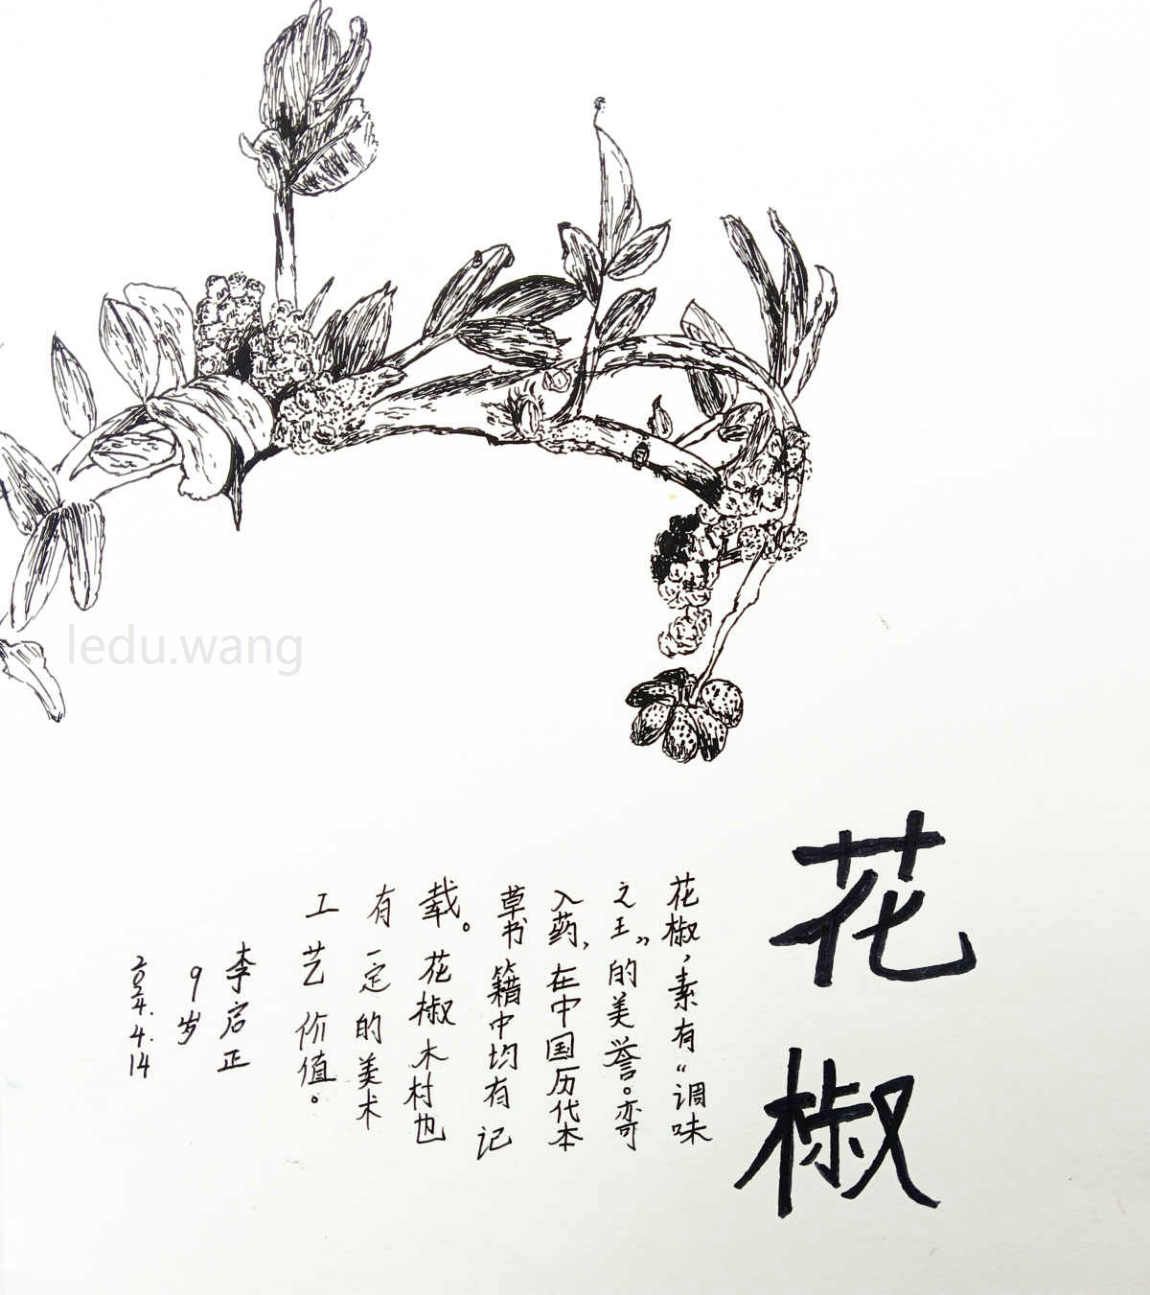 花椒
花椒，素有“调味
之王”的美誉。亦可
入药，在中国历代本
草书籍中均有记
载。花椒木材也
有一定的美术
工艺价值。
李启正
9岁
2024.4.14
ledu.wang